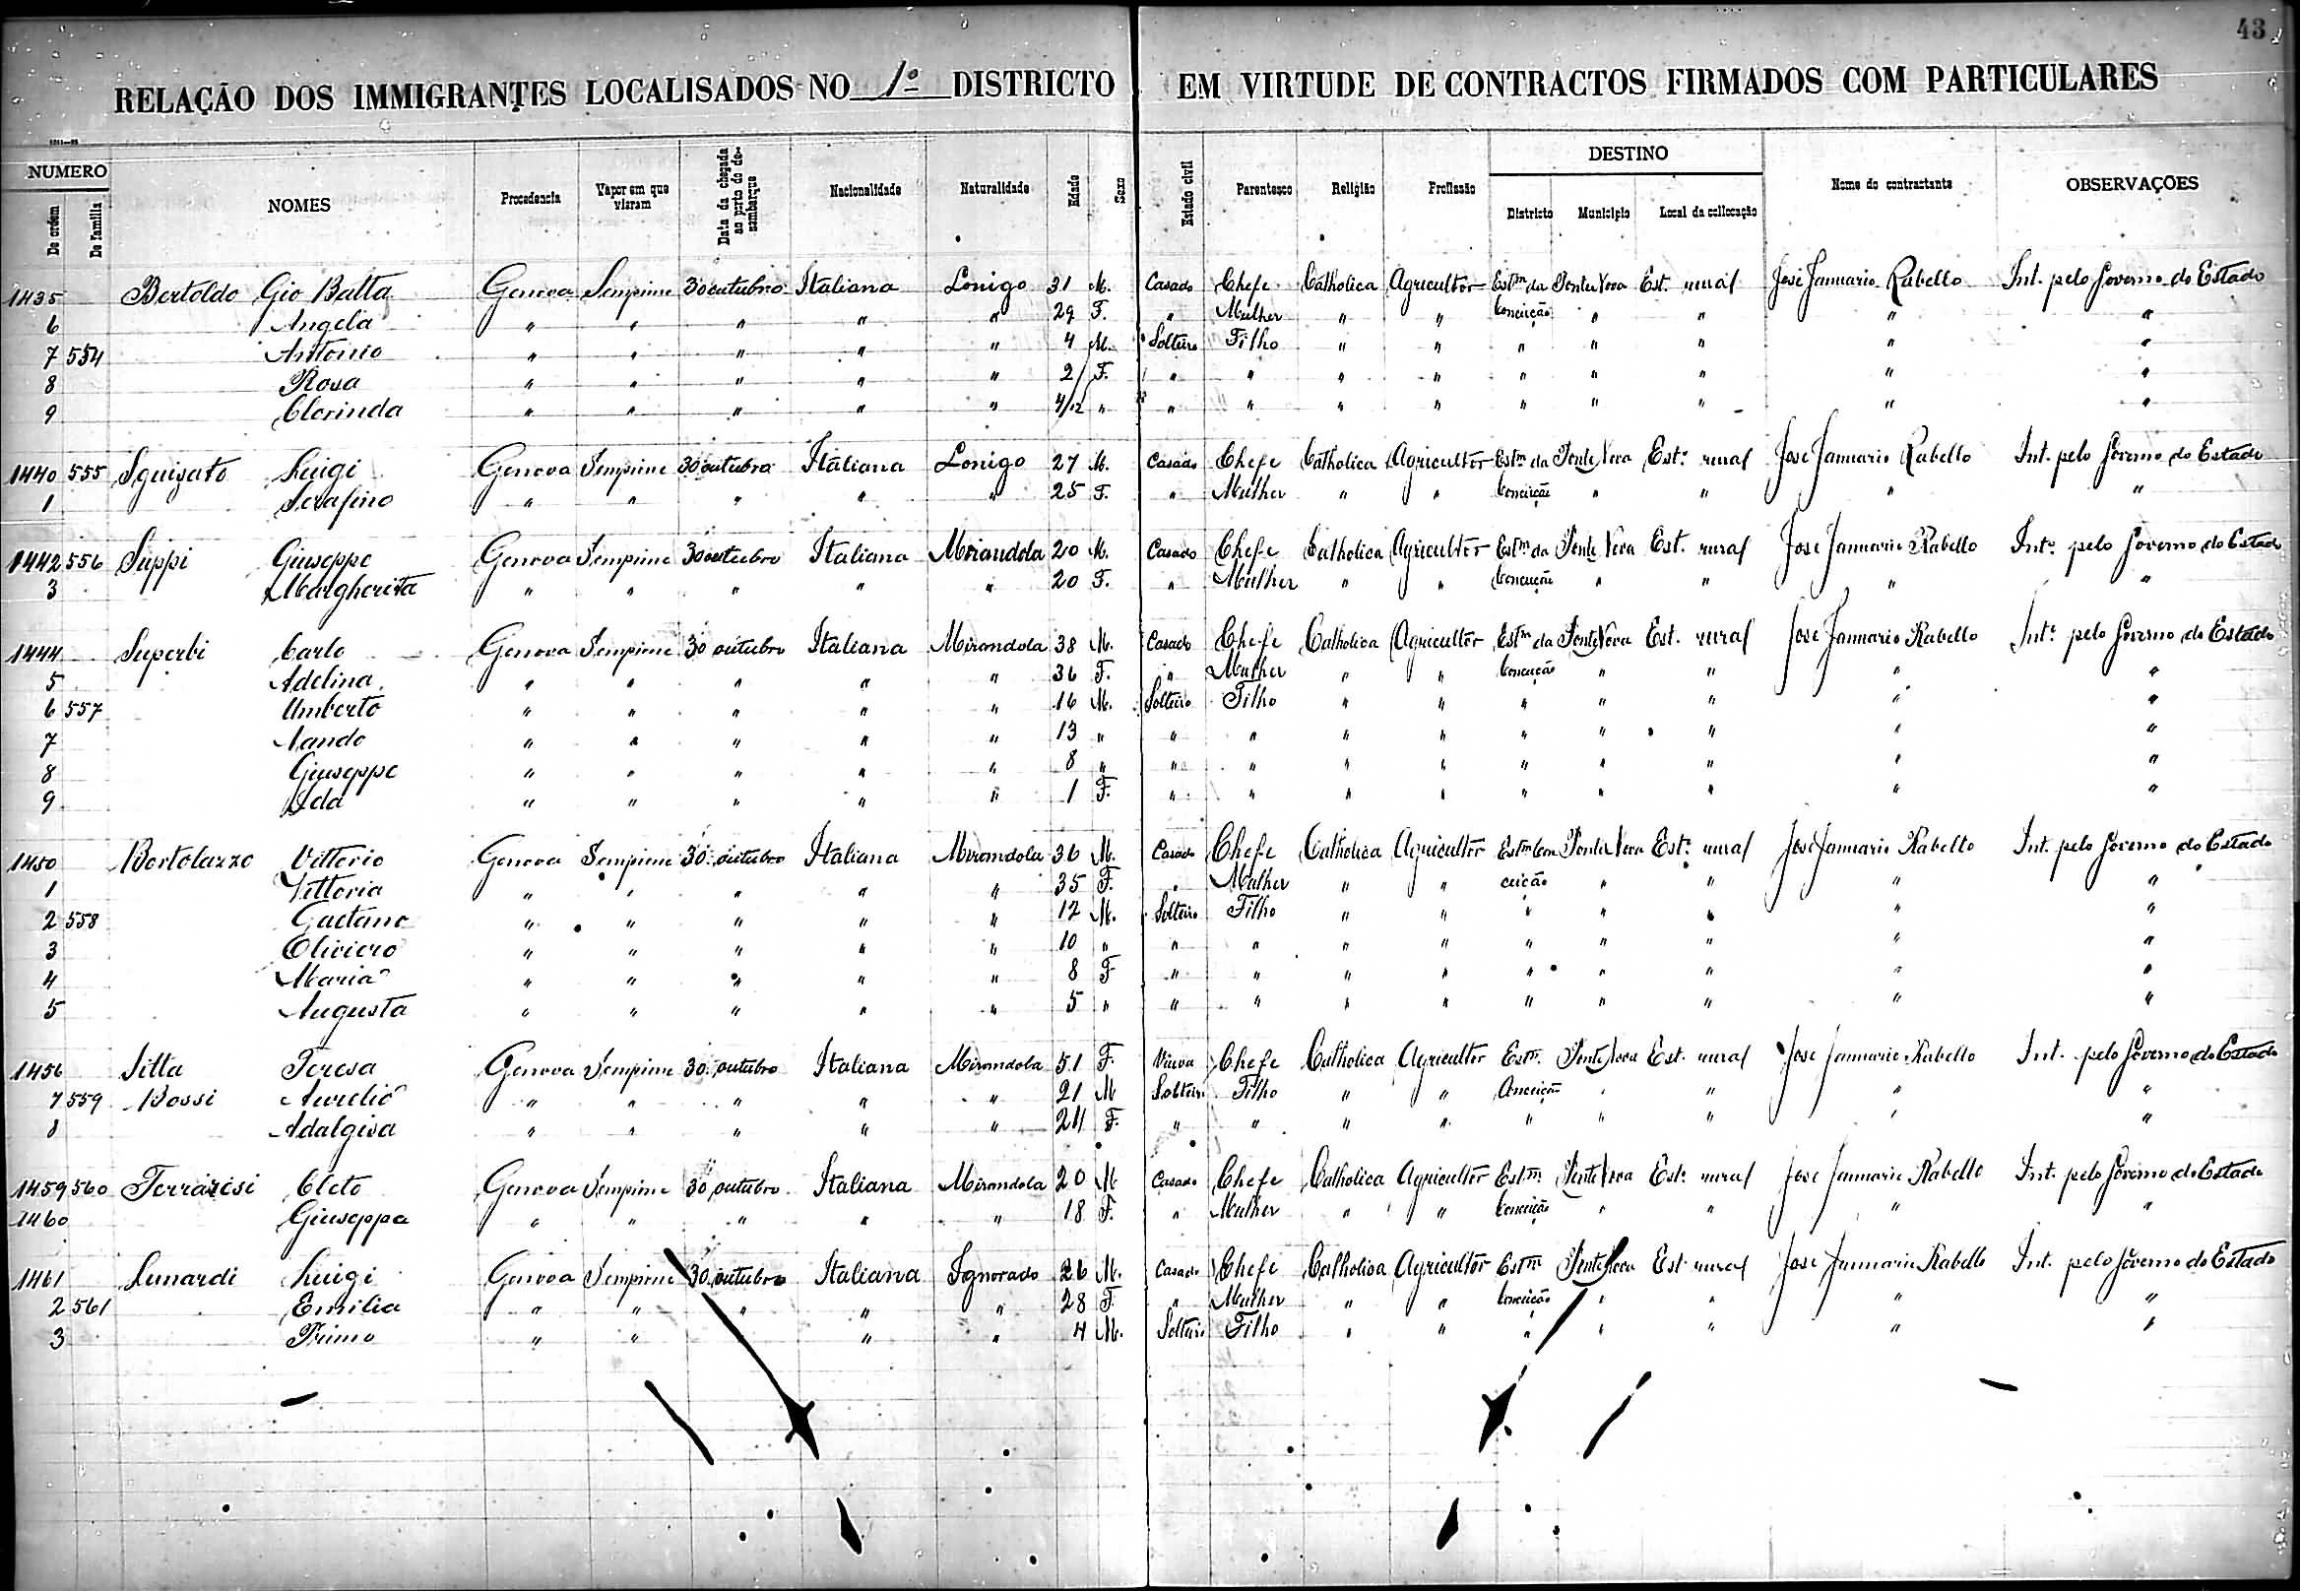 43
RELAÇÃO DOS IMMIGRANTES LOCALISADOS NO 1º DISTRICTO EM VIRTUDE DE CONTRACTOS FIRMADOS COM PARTICULARES
NUMERO
De ordem De familia NOMES Procedencia Vapor em que vieram Data da chegada ao porto do desembarque Nacionalidade Naturalidade Edade Sexo Estado civil Parentesco Religião Profissão DESTINO Districto Municipio Local da collocação Nome do contractante OBSERVAÇÕES
1435 Bertoldo Gio Batta Genova Sempione 30 outubro Italiana Lonigo 31 M. Casado Chefe Catholica Agricultor Estm da Ponte Nova Est. rural José Januario Rabello Int. pelo Governo do Estado
6 Angela " " " " " 29 F. " Mulher " " Conceição " " " "
7 554 Antonio " " " " " 4 M. Solteiro Filho " " " " " " "
8 Rosa " " " " " 2 F. " " " " " " " " "
9 Clorinda " " " " " 4/12 " " " " " " " " " "
1440 555 Sguizato Luigi Genova Sempione 30 outubro Italiana Lonigo 27 M. Casado Chefe Catholica Agricultor Estm da Ponte Nova Est. rural José Januario Rabello Int. pelo Governo do Estado
1 Serafino " " " " " 25 F. " Mulher " " Conceição " " " "
1442 556 Suppi Giuseppe Genova Sempione 30 outubro Italiana Mirandola 20 M. Casado Chefe Catholica Agricultor Estm da Ponte Nova Est. rural José Januario Rabello Int. pelo Governo do Estado
3 Margherita " " " " " 20 F. " Mulher " " Conceição " " " "
1444 Superbi Carlo Genova Sempione 30 outubro Italiana Mirandola 38 M. Casado Chefe Catholica Agricultor Estm da Ponte Nova Est. rural José Januario Rabello Int. pelo Governo do Estado
5 Adelina " " " " " 36 F. " Mulher " " Conceição " " " "
6 557 Umberto " " " " " 16 M. Solteiro Filho " " " " " " "
7 Nando " " " " " 13 " " " " " " " " " "
8 Giuseppe " " " " " 8 " " " " " " " " " "
9 Ida " " " " " 1 F. " " " " " " " " "
1450 Bortolazzo Vittorio Genova Sempione 30 outubro Italiana Mirandola 36 M. Casado Chefe Catholica Agricultor Estm Con Ponte Nova Est. rural José Januario Rabello Int. pelo Governo do Estado
1 Vittoria " " " " " 35 F. " Mulher " " ceição " " " "
2 558 Gaetano " " " " " 12 M. Solteiro Filho " " " " " " "
3 Oliviero " " " " " 10 " " " " " " " " " "
4 Maria " " " " " 8 F " " " " " " " " "
5 Augusta " " " " " 5 " " " " " " " " " "
1456 Sitta Teresa Genova Sempione 30 outubro Italiana Mirandola 51 F. Viuva Chefe Catholica Agricultor Estm. Ponte Nova Est. rural José Januario Rabello Int. pelo Governo do Estado
7 559 Bossi Aurelio " " " " " 21 M Solteiro Filho " " Conceição " " " "
8 Adalgisa " " " " " F. " " " " " " " " "
1459 560 Ferraresi Cleto Genova Sempione 30 outubro Italiana Mirandola 20 M Casado Chefe Catholica Agricultor Estm Ponte Nova Est. rural José Januario Rabello Int. pelo Governo do Estado
1460 Giuseppa " " " " " 18 F. " Mulher " " Conceição " " " "
1461 Lunardi Luigi Genova Sempione 30 outubro Italiana Ignorado 26 M. Casado Chefe Catholica Agricultor Estm Ponte Nova Est rural José Januario Rabello Int. pelo Governo do Estado
2 561 Emilia " " " " " 28 F. " Mulher " " Conceição " " " "
3 Primo " " " " 4 M. Solteiro Filho " " " " " " "